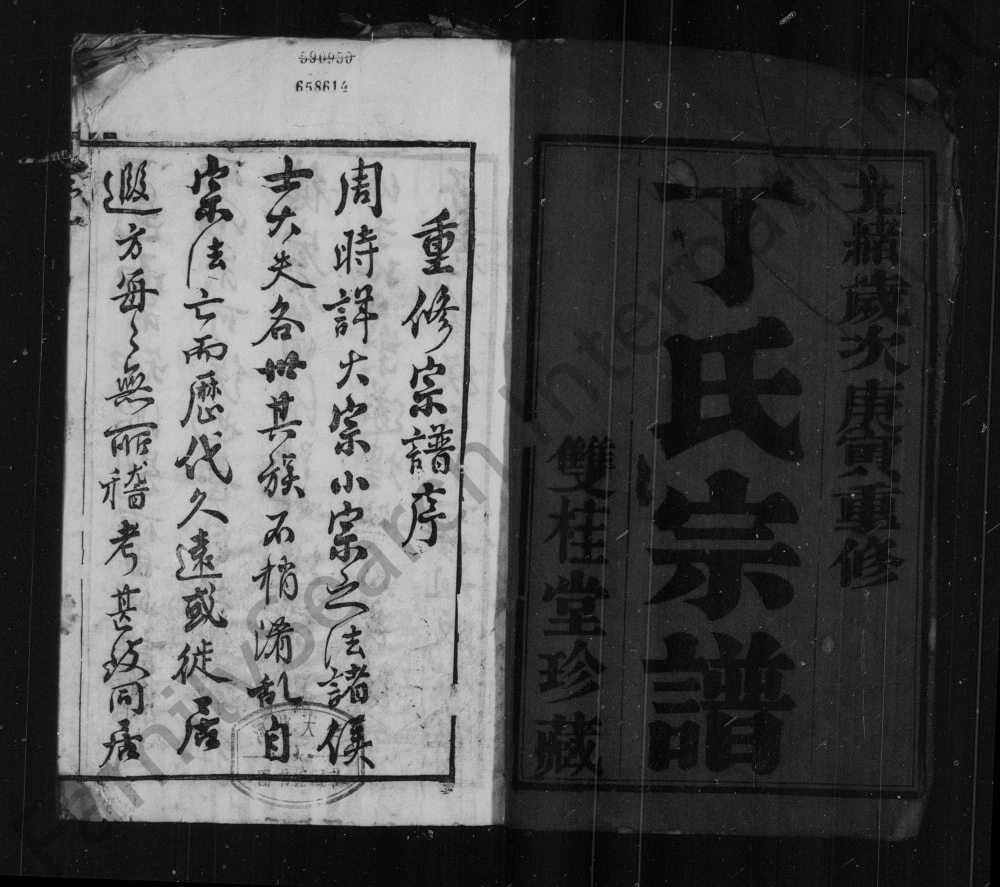 光緒歲次庚寅重修
丁氏宗譜
雙桂堂珍藏
590950
658614
重修宗譜序
周時詳大宗小宗之法諸侯
士大夫各世其族不稍淆亂自
宗法亡而歷代久遠或徙居
遐方每〻無所稽考甚致同居
FamilySearch International